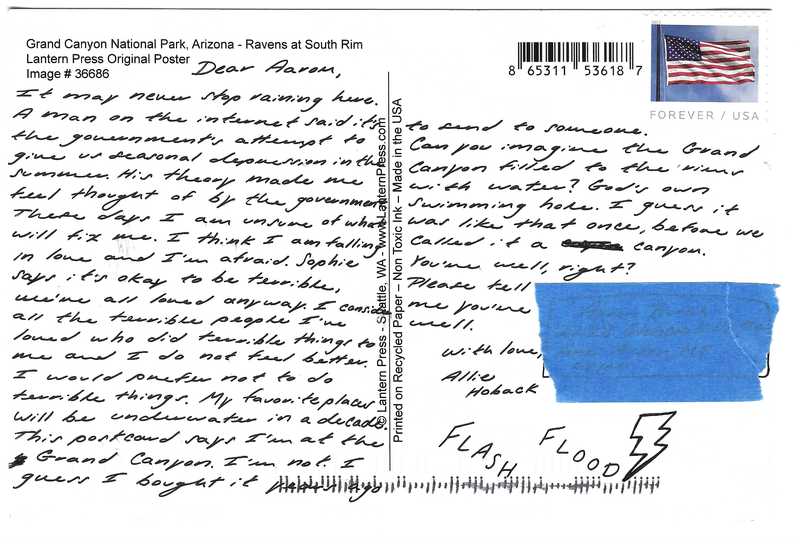 Grand Canyon National Park, Arizona - Ravens at South Rim
Lantern Press Original Poster
Image # 36686
8 65311 53618 7
FOREVER / USA
Dear Aaron,
It may never stop raining here.
A man on the internet said it's
the government's attempt to
give us seasonal depression in the
summer. His theory made me
feel thought of by the government
These days I am unsure of what
will fix me. I think I am falling
in love and I'm afraid. Sophie
says it's okay to be terrible,
we're all loved anyway. I consider
all the terrible people I've
loved who did terrible things to
me and I do not feel better.
I would prefer not to do
terrible things. My favorite places
will be underwater in a decade.
This postcard says I'm at the
Grand Canyon. I'm not. I
guess I bought it years ago
© Lantern Press - Seattle, WA - www.LanternPress.com
Printed on Recycled Paper – Non Toxic Ink – Made in the USA
to send to someone.
Can you imagine the Grand
Canyon filled to the rims
with water? God's own
swimming hole. I guess it
was like that once, before we
called it a canyon.
You're well, right?
Please tell
me you're
well.
with love,
Allie
Hoback
FLASH FLOOD